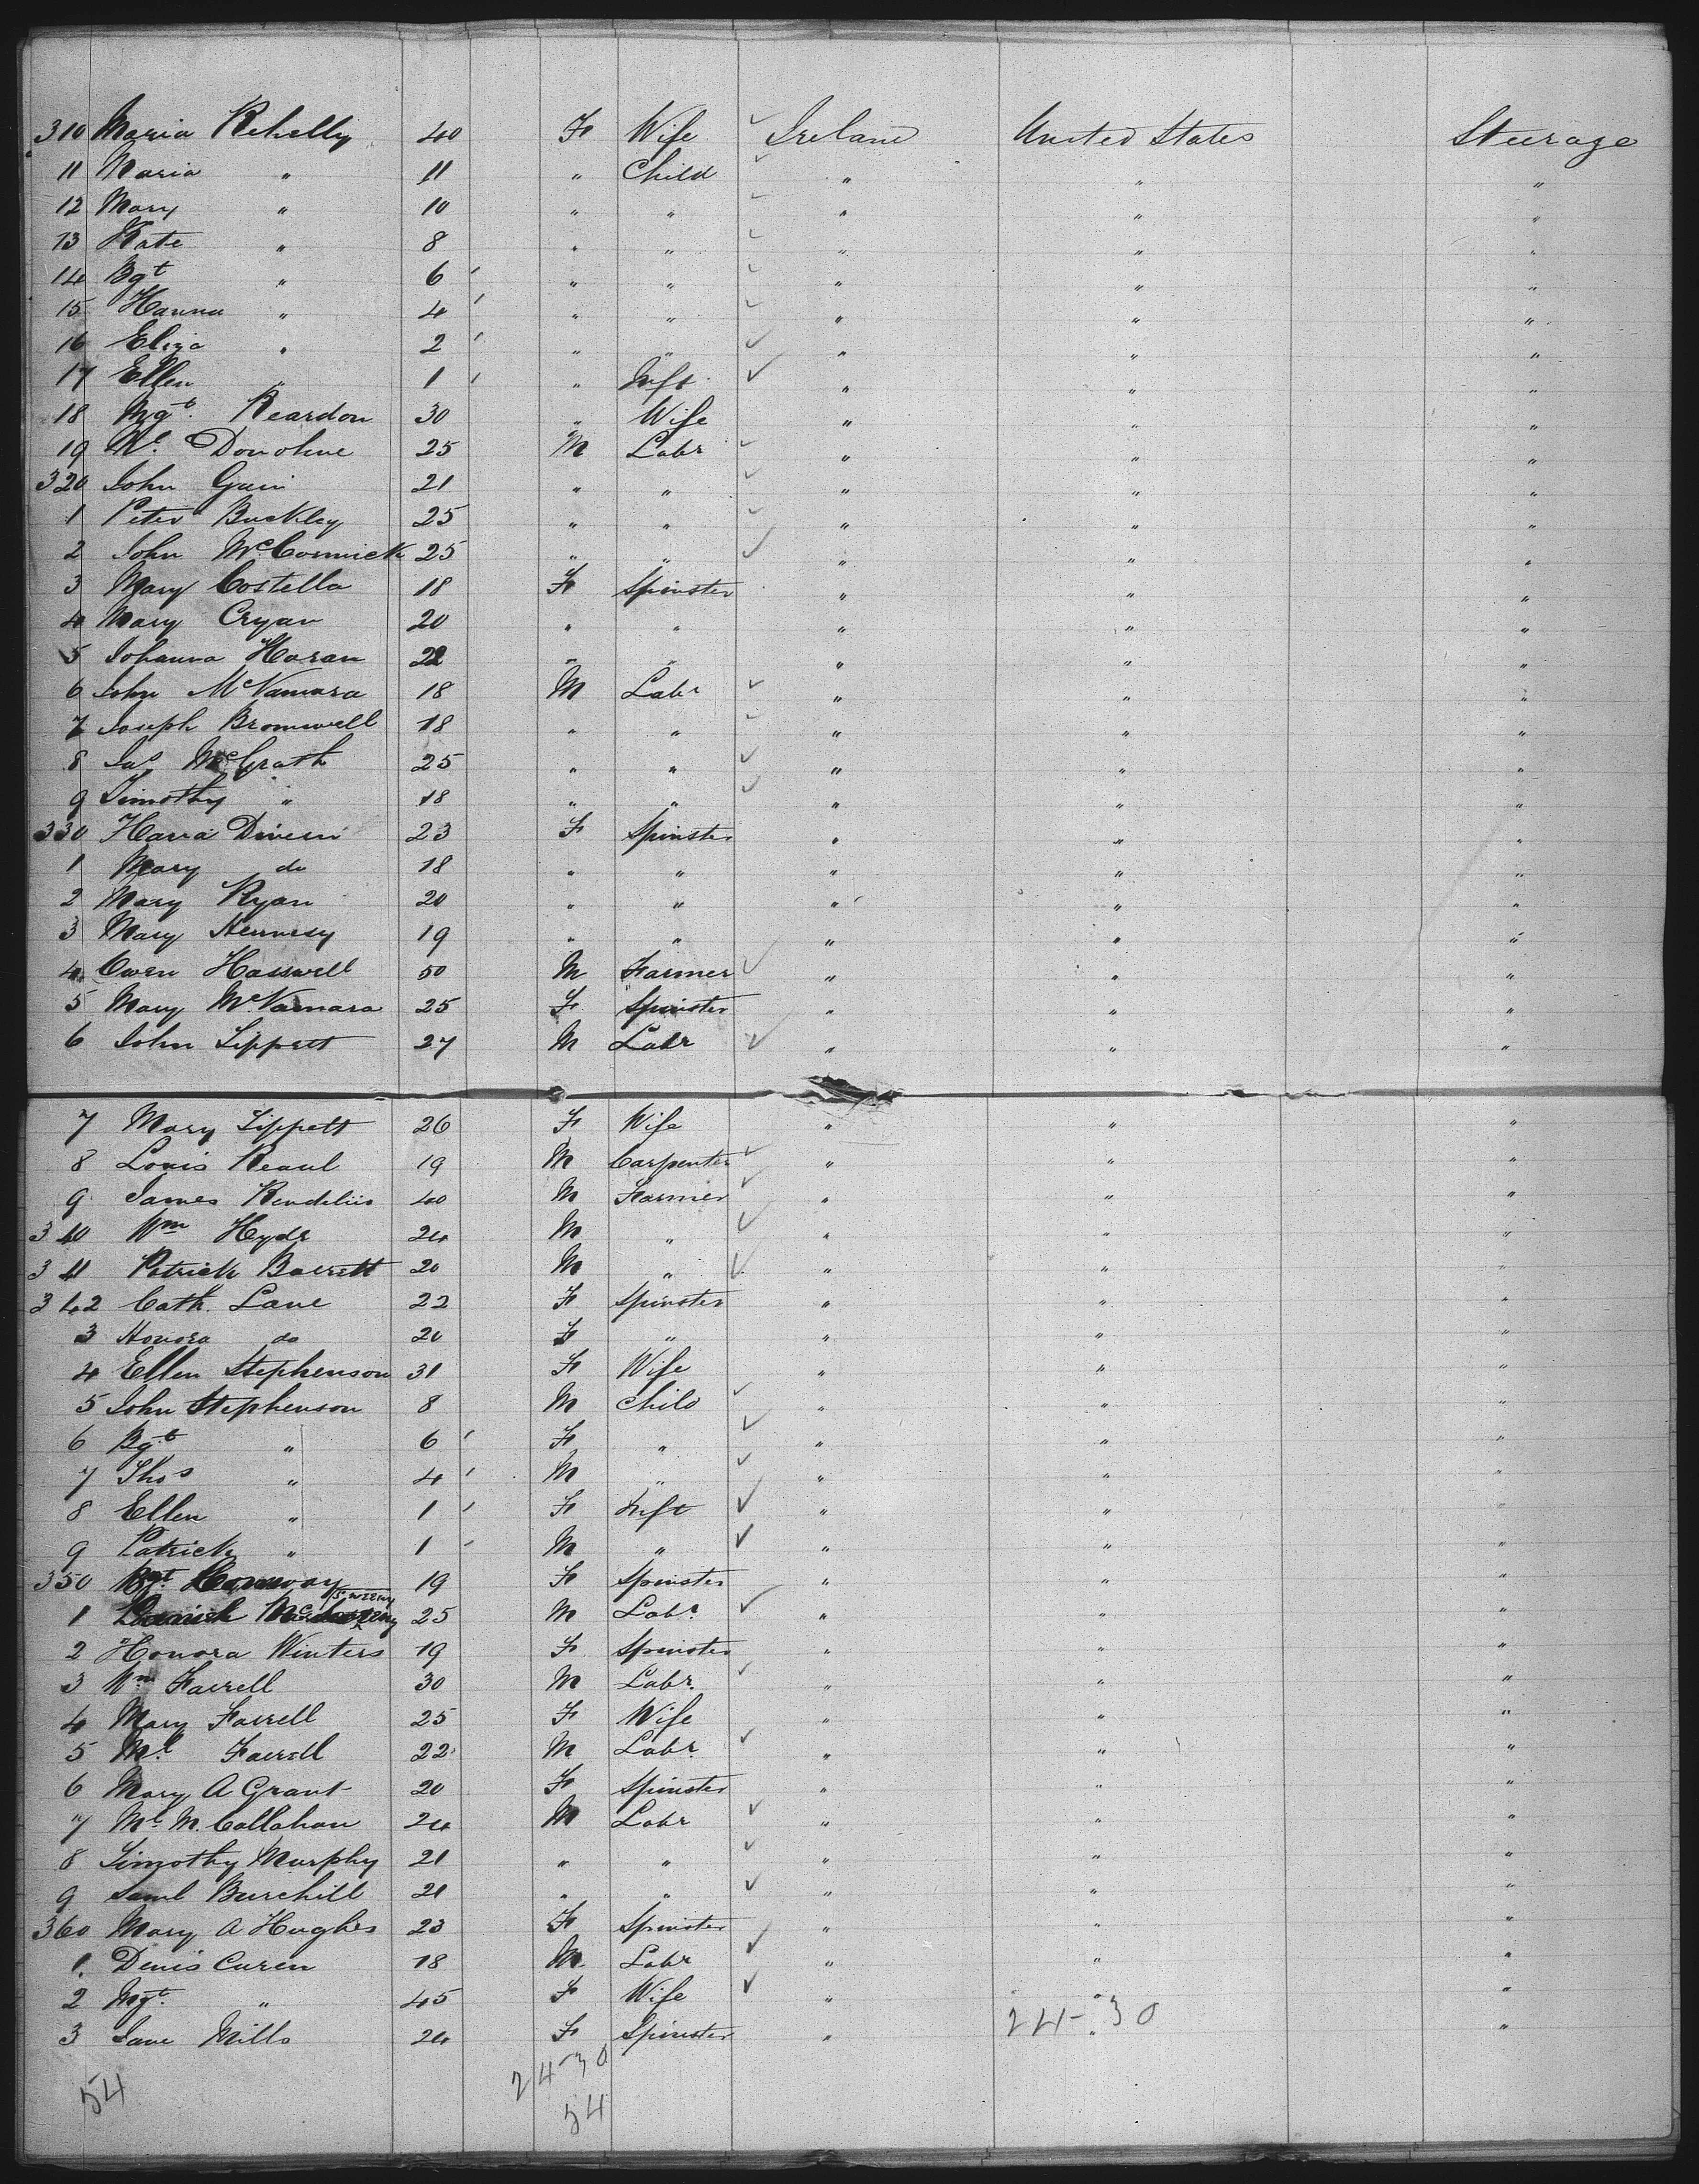 310 Maria Rehelly 40 F Wife Ireland United States Steerage
11 Maria " 11 " Child " " "
12 Mary " 10 " " " " "
13 Kate " 8 " " " " "
14 Bgt " 6 " " " " "
15 Hanna " 4 " " " " "
16 Eliza " 2 " " " " "
17 Ellen " 1 " Inft " " "
18 Mgt. Reardon 30 " Wife " " "
19 Ml. Donohue 25 M Labr " " "
320 John 21 " " " " "
1 Peter Buckley 25 " " " " "
2 John McCormick 25 " " " " "
3 Mary Costella 18 F Spinster " " "
4 Mary Cryan 20 " " " " "
5 Johanna Horan 22 " " " " "
6 John McNamara 18 M Labr " " "
7 Joseph Bromwell 18 " " " " "
8 Jas McGrath 25 " " " " "
9 Timothy " 18 " " " " "
330 Hana 23 F Spinster " " "
1 Mary do 18 " " " " "
2 Mary Ryan 20 " " " " "
3 Mary Hennesy 19 " " " " "
4 Owen Hasswell 50 M Farmer " " "
5 Mary McNamara 25 F Spinster " " "
6 John Lippett 27 M Labr " " "
7 Mary Lippett 26 F Wife " " "
8 Louis 19 M Carpenter " " "
9 James 40 M Farmer " " "
340 Wm Hyde 24 M " " " "
341 Patrick Barrett 20 M " " " "
342 Cath. Lane 22 F Spinster " " "
3 Honora do 20 F " " " "
4 Ellen Stephenson 31 F Wife " " "
5 John Stephenson 8 M Child " " "
6 Bgt " 6 F " " " "
7 Thos " 4 M " " " "
8 Ellen " 1 F Inft " " "
9 Patrick " 1 M " " " "
350 Bgt. Conway 19 F Spinster " " "
1 Sweeny 25 M Labr " " "
2 Honora Winters 19 F Spinster " " "
3 Wm Farrell 30 M Labr. " " "
4 Mary Farrell 25 F Wife " " "
5 Ml Farrell 22 M Labr " " "
6 Mary A Grant 20 F Spinster " " "
7 Ml M. Callahan 24 M Labr " " "
8 Timothy Murphy 21 " " " " "
9 Saml Burchill 21 " " " " "
360 Mary A Hughes 23 F Spinster " " "
1 Denis Curen 18 M Labr " " "
2 Mgt. " 45 F Wife " " "
3 Jane Mills 24 F Spinster " " "
24-30
24-30
54
54